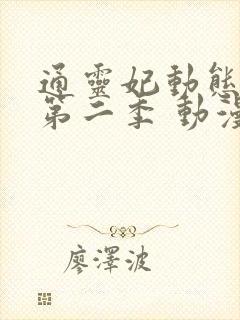 通靈妃動態
第二季 動漫
廖澤波